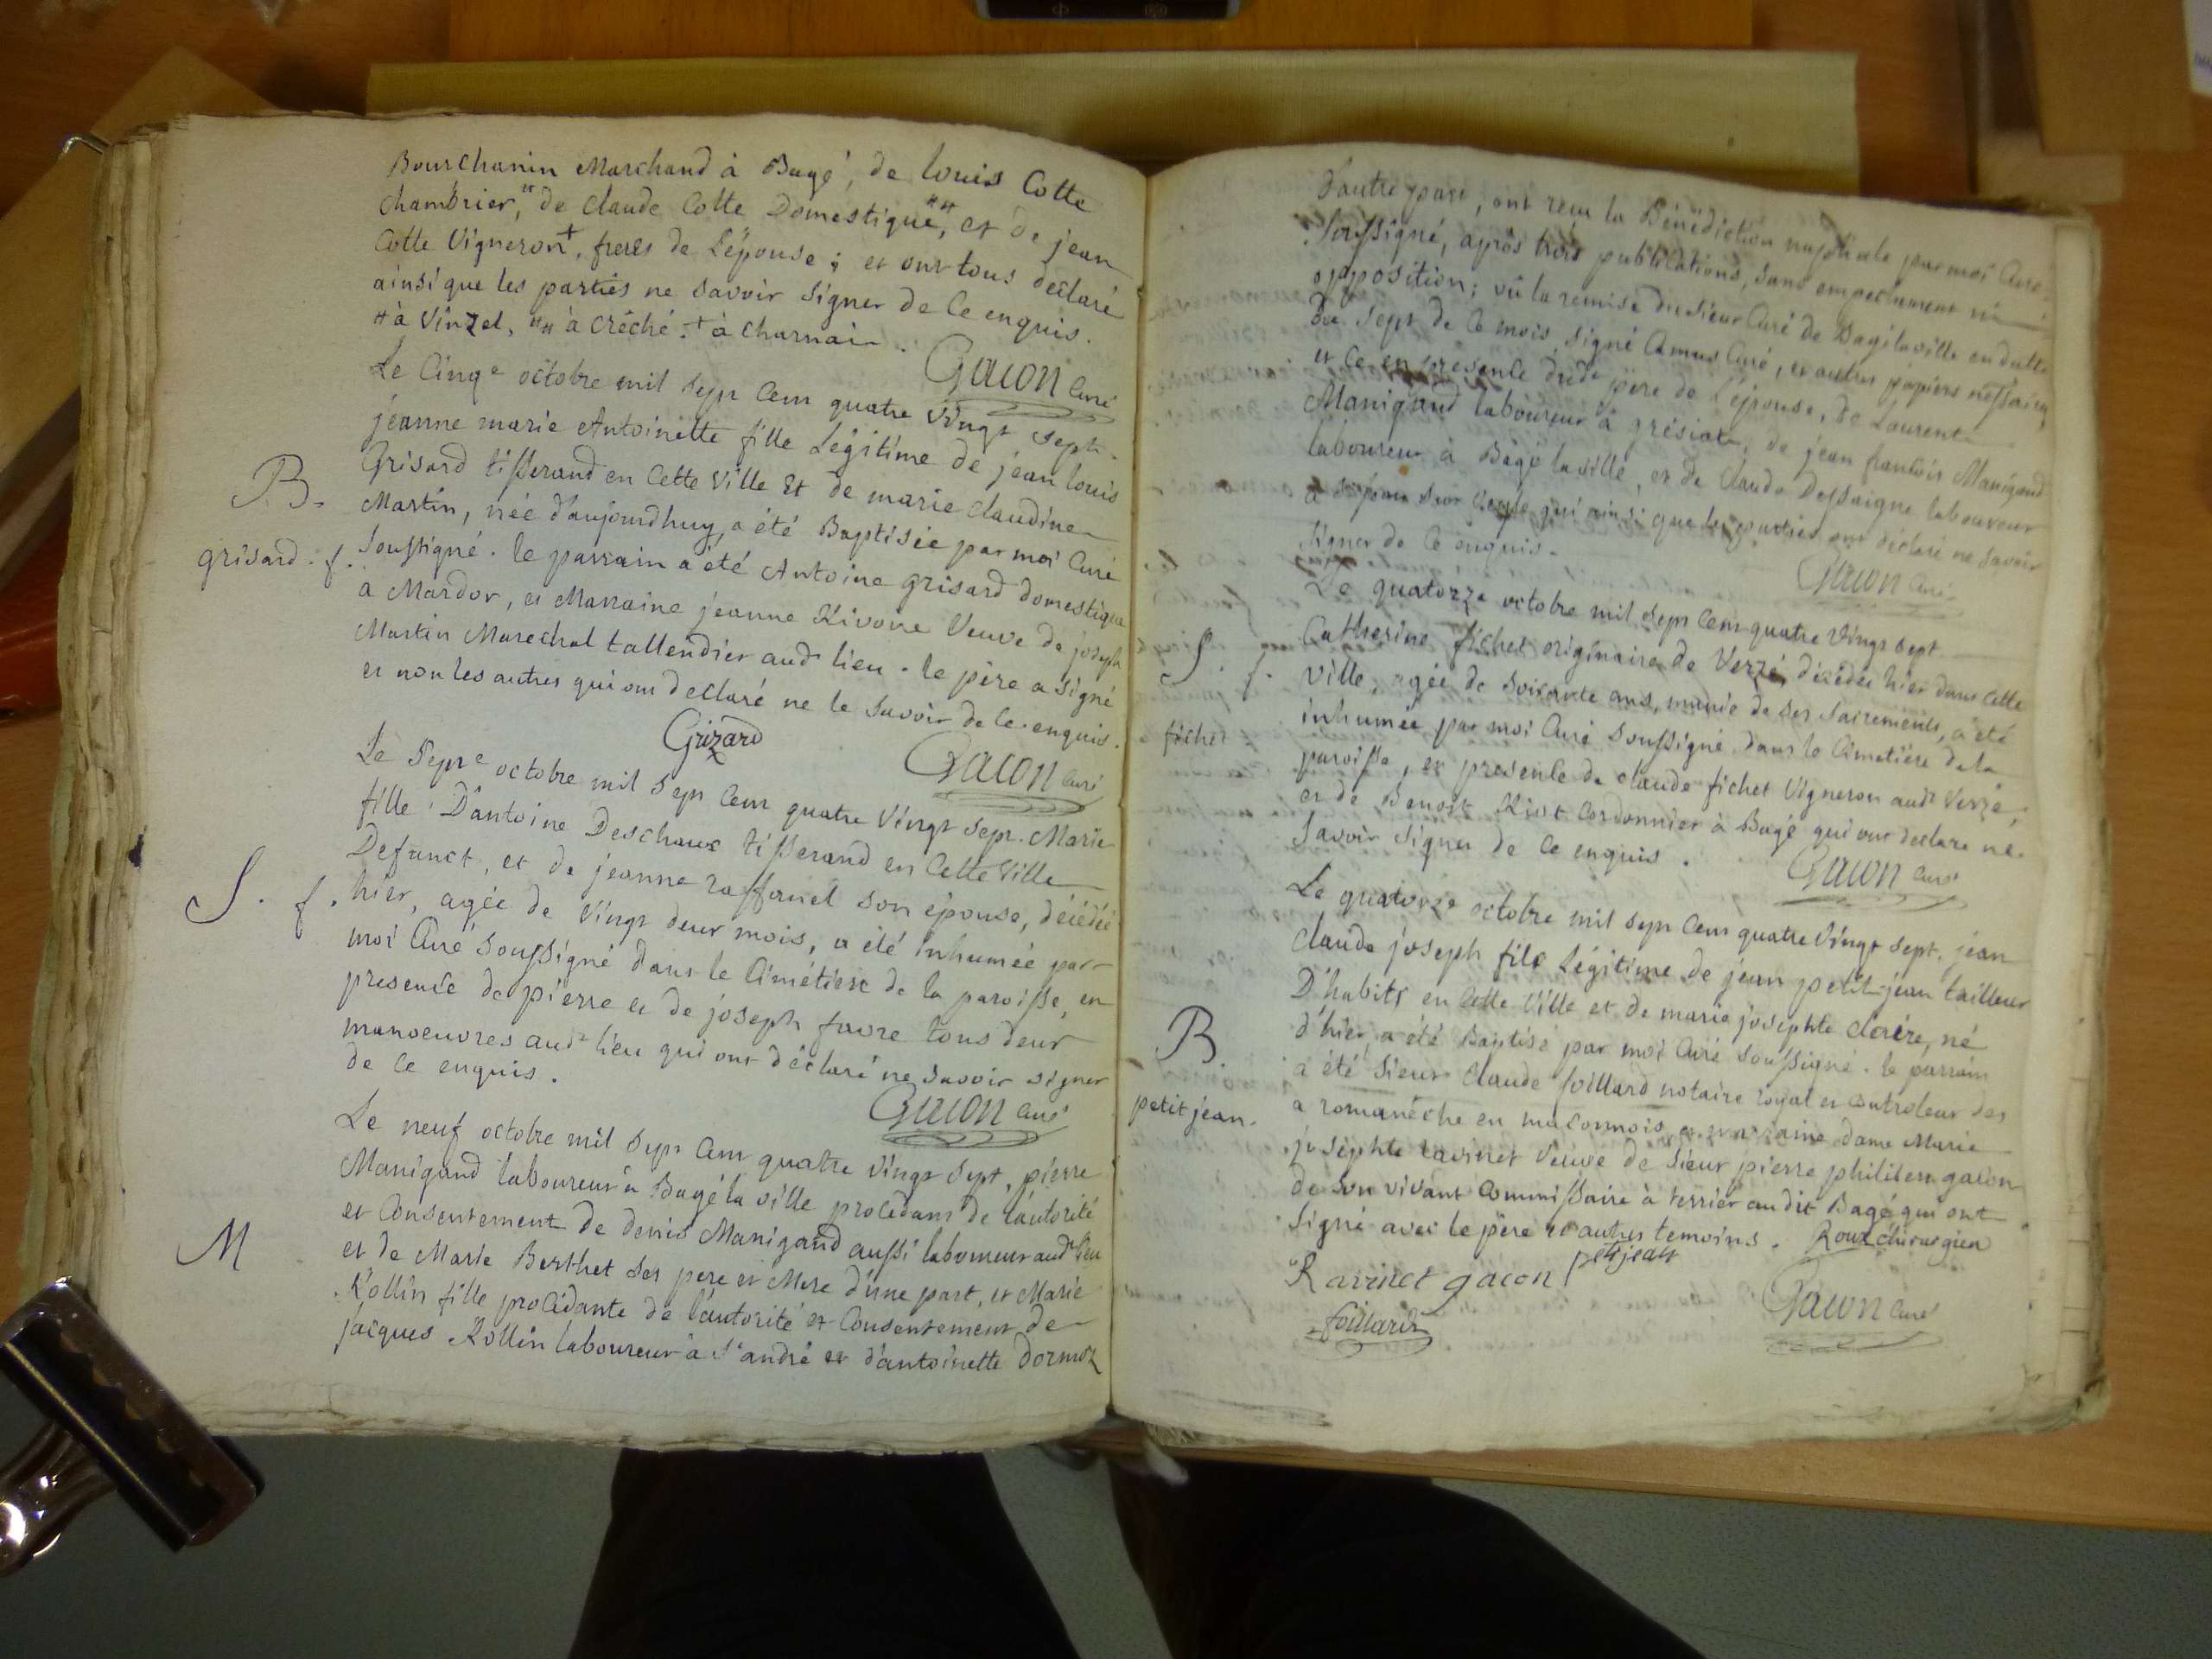 Bourchanin Marchand à Bagé, de louis Cotte
chambrier,# de claude Cotte Domestique,## et de jean
Cotte Vigneron+, freres de L'épouse ; et ont tous declaré
ainsi que les parties ne savoir signer de ce enquis.
# à Vinzel, ## à Crêché. + à charnai.
Gacon Curé
Le Cinqe octobre mil sept cent quatre vingt sept.
jeanne marie Antoinette fille Légitime de jean louis
Grisard tisserand en cette ville Et de marie claudine
B.
Martin, née d'aujourdhuy, a été Baptisée par moi Curé
grisard. f.
soussigné. le parrain a été Antoine grisard domestique
à Mardor, et Marraine jeanne Veuve de joseph
Martin Marechal tallendier aud lieu. le père a signé
et non les autres qui ont declaré ne le savoir de ce enquis.
Grizard
Gacon Curé
Le septe octobre mil sept cent quatre vingt sept. Marie
fille D'antoine Deschaux tisserand en cette ville
Defunct, et de jeanne raffanel son épouse, décédée
S. f.
hier, agée de vingt deux mois, a été inhumée par
moi Curé soussigné dans le Cimétiere de la paroisse, en
presence de pierre et de joseph favre tous deux
manoeuvres aud lieu qui ont déclaré ne savoir signer
de ce enquis.
Gacon Curé
Le neuf octobre mil sept cent quatre vingt sept, pierre
Manigand laboureur à Bagé la ville procedant de l'autorité
et Consentement de denis Manigand aussi laboureur aud lieu
M
et de Marie Berthet ses pere et Mere d'une part, et Marie
Rollin fille procédante de l'autorité et Consentement de
jacques Rollin laboureur à St andré et d'antoinette Dormoz
d'autre part, ont reçu la Bénédiction nuptiale par moi Curé
soussigné, après trois publications, sans empechement ni
opposition ; vû la remise du sieur Curé de Bagé la ville en datte
du sept de ce mois, signé Camus Curé, et autres papiers nessaires,
et ce en presence dud père de l'épouse, de Laurent
Manigand laboureur à grésiat, de jean francois Manigand
laboureur à Bagé la ville, et de claude Dessaigne laboureur
à St jean sur veyle qui ainsi que les parties ont déclaré ne savoir
signer de ce enquis.
Gacon Curé
Le quatorze octobre mil sept cent quatre vingt sept
S. f.
Catherine fichet originaire de Verzé, décédée hier dans cette
ville, agée de soixante ans, munie de ses sacrements, a été
fichet
inhumée par moi Curé soussigné dans le Cimetière de la
paroisse, en presence de claude fichet Vigneron aud Verzé,
et de Benoit Cordonnier à Bagé qui ont declaré ne
savoir signer de ce enquis.
Gacon Curé
Le quatorze octobre mil sept cent quatre vingt sept, jean
claude joseph fils Légitime de jean petit-jean tailleur
D'habits en cette ville et de marie josephte clerére, né
B.
d'hier, a été Baptisé par moi Curé soussigné. le parrain
a été sieur claude foillard notaire royal et controleur des
petit jean.
a romanêche en maconnois, et marraine dame Marie
josephte ravinet veuve de sieur pierre philibert gacon
de son vivant Commissaire à terrier audit Bagé qui ont
signé avec le père et autres temoins. Roux chirurgien
Ravinet gacon petitjean
foillard
Gacon Curé